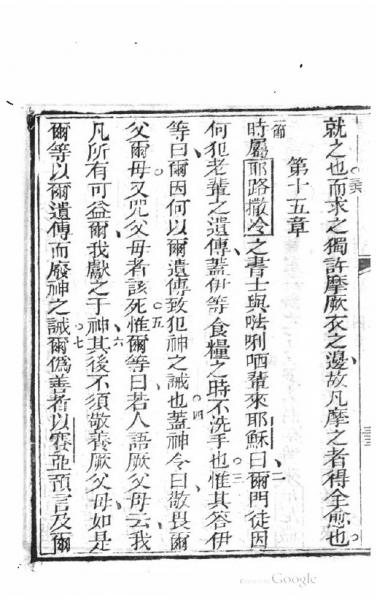 就之也而求之獨許摩厥衣之邊故凡摩之者得全愈也
第十五章
節
時屬耶路撒冷之書士與𠵽唎哂輩來耶穌曰爾門徒因
二
何犯老輩之遺傳蓋伊等食糧之時不洗手也惟其答伊
三
等曰爾因何以爾遺傳致犯神之誡也蓋神令曰敬畏爾
四
父爾母又咒父母者該死惟爾等曰若人語厥父母云我
五
凡所有可益爾我獻之于神其後不須敬養厥父母如是
六
爾等以爾遺傳而廢神之誡爾偽善者以賽亞預言及爾
七
Google